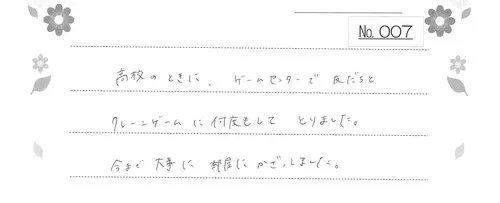 No. 007
高校のときに、ゲームセンターで友だちと
クレーンゲームに何度もして とりました。
今まで大事に部屋にかざいしました。